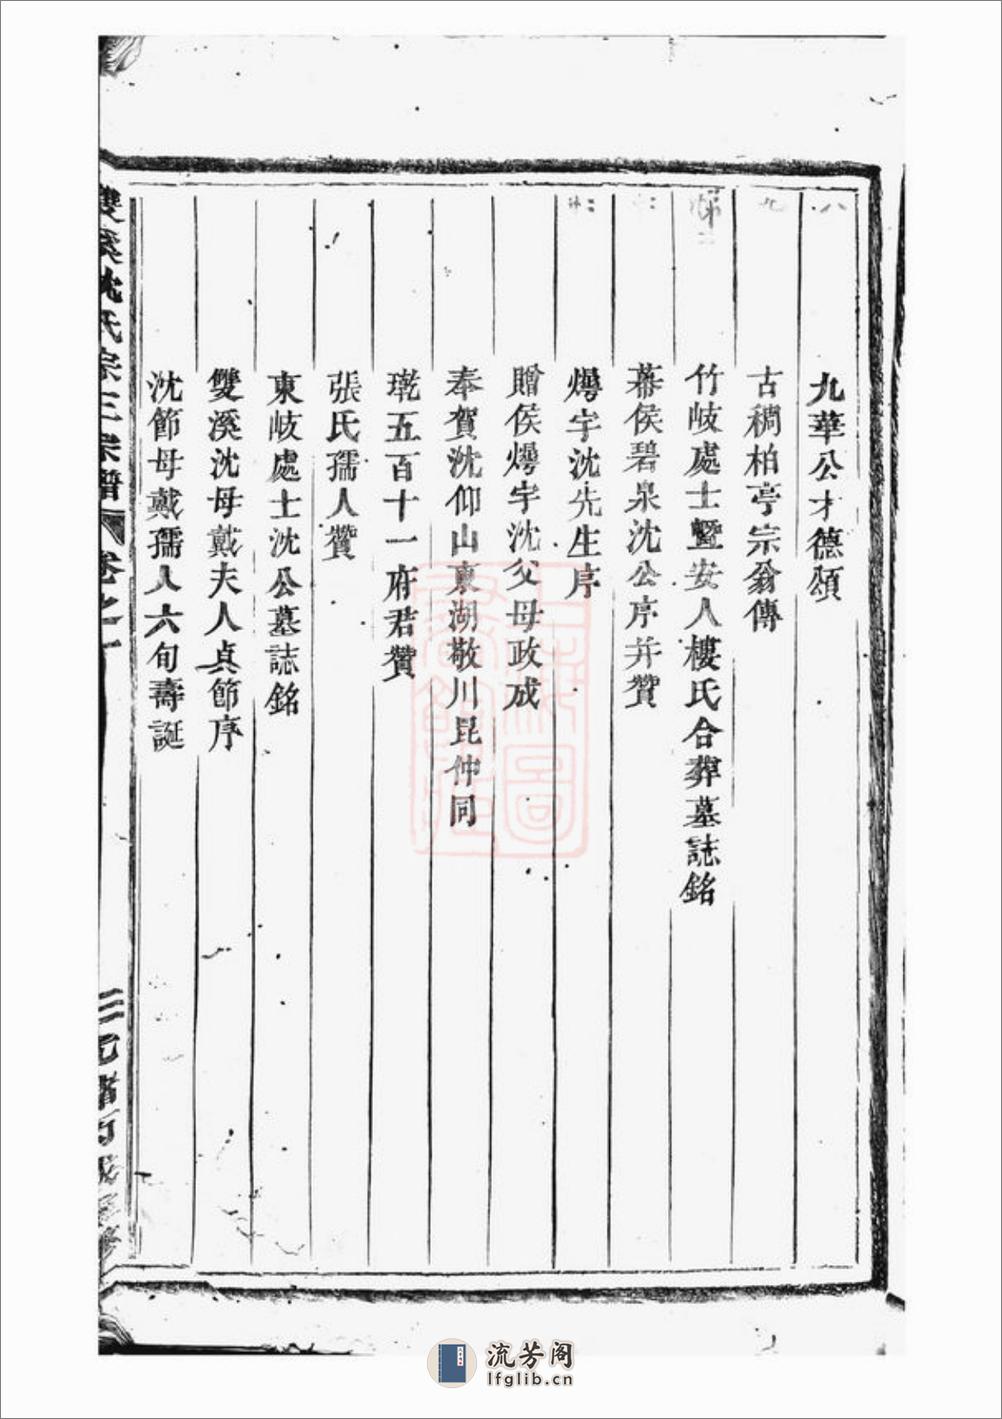 九華公才德頌
古稠柏亭宗翁傳
竹岐處士暨安人樓氏合葬墓誌銘
幕侯碧泉沈公序并贊
㷼宇沈先生序
贈侯㷼宇沈父母政成
奉賀沈仰山東湖敬川昆仲同
璣五百十一府君贊
張氏孺人贊
東岐處士沈公墓誌銘
雙溪沈母戴夫人貞節序
沈節母戴孺人六旬壽誕
雙溪沈氏宗三宗譜
卷之一
流芳阁
lfglib.cn